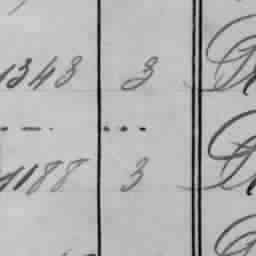 1343 3
1188 3